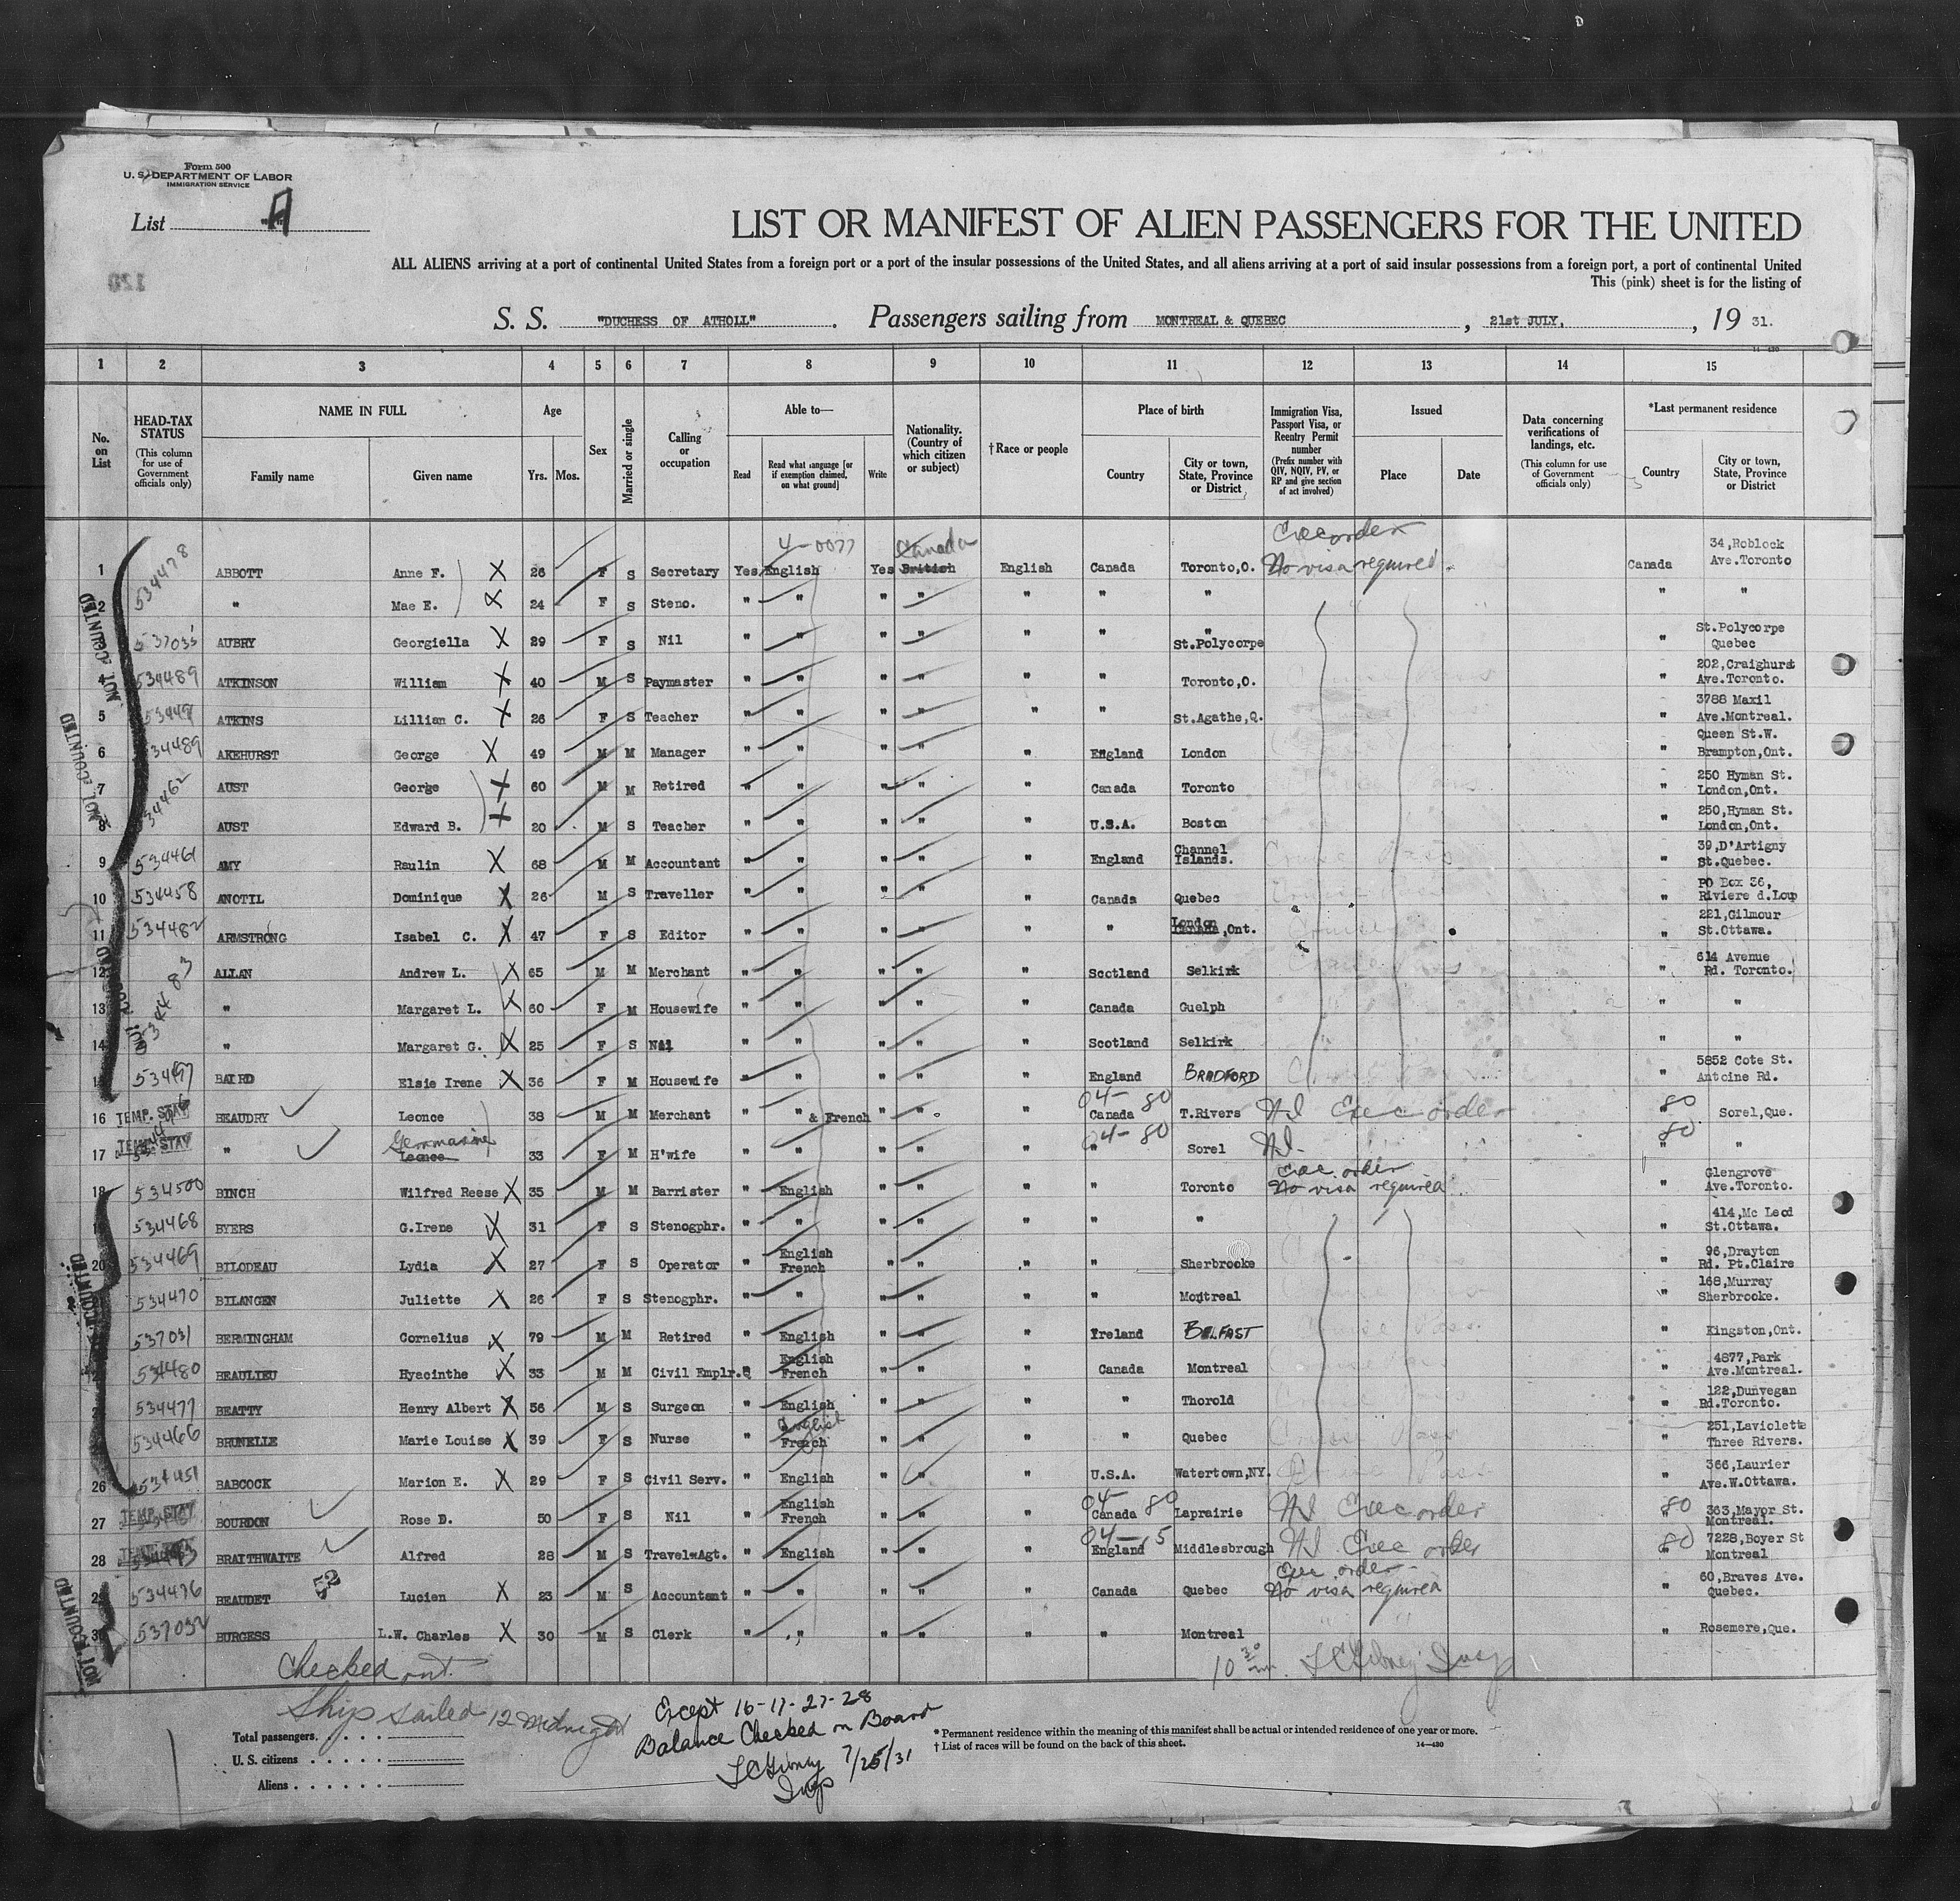 Form 500
U. S. DEPARTMENT OF LABOR
IMMIGRATION SERVICE
List "A"
LIST OR MANIFEST OF ALIEN PASSENGERS FOR THE UNITED
ALL ALIENS arriving at a port of continental United States from a foreign port or a port of the insular possessions of the United States, and all aliens arriving at a port of said insular possessions from a foreign port, a port of continental United
This (pink) sheet is for the listing of
S. S. "DUCHESS OF ATHOLL". Passengers sailing from MONTREAL & QUEBEC, 21st JULY, , 19 31.
14—430
1 2 3 4 5 6 7 8 9 10 11 12 13 14 15
No. on List
HEAD-TAX STATUS (This column for use of Government officials only)
NAME IN FULL Family name Given name
Age Yrs. Mos.
Sex
Married or single
Calling or occupation
Able to— Read Read what language [or if exemption claimed, on what ground] Write
Nationality. (Country of which citizen or subject)
†Race or people
Place of birth Country City or town, State, Province or District
Immigration Visa, Passport Visa, or Reentry Permit number (Prefix number with QIV, NQIV, PV, or RP and give section of act involved)
Issued Place Date
Data concerning verifications of landings, etc. (This column for use of Government officials only)
*Last permanent residence Country City or town, State, Province or District
4-0077 Canada Exec order 34, Roblock
1 534478 ABBOTT Anne F. X 26 F S Secretary Yes English Yes British English Canada Toronto,O. No visa required. Canada Ave.Toronto
2 " Mae E. X 24 F S Steno. " " " " " " " " "
3 537035 AUBRY Georgiella X 29 F S Nil " " " " " " St.Polycorpe " St.Polycorpe Quebec
4 534489 ATKINSON William X 40 M S Paymaster " " " " " " Toronto,O. " 202,Craighurst Ave.Toronto.
5 ATKINS Lillian C. X 26 F S Teacher " " " " " " St.Agathe,Q. " 3788 Maxil Ave.Montreal.
6 534489 AKEHURST George X 49 M M Manager " " " " " England London " Queen St.W. Brampton,Ont.
7 534462 AUST George X 60 M M Retired " " " " " Canada Toronto " 250 Hyman St. London,Ont.
8 AUST Edward B. X 20 M S Teacher " " " " " U.S.A. Boston " 250,Hyman St. London,Ont.
9 534461 AMY Raulin X 68 M M Accountant " " " " " England Channel Islands. " 39,D'Artigny St.Quebec.
10 534458 ANCTIL Dominique X 26 M S Traveller " " " " " Canada Quebec " PO Box 36, Riviere d.Loup
11 534482 ARMSTRONG Isabel C. X 47 F S Editor " " " " " " London,Ont. " 221,Gilmour St.Ottawa.
12 534483 ALLAN Andrew L. X 65 M M Merchant " " " " " Scotland Selkirk " 614 Avenue Rd. Toronto.
13 " Margaret L. X 60 F M Housewife " " " " " Canada Guelph " "
14 " Margaret G. X 25 F S Nil " " " " " Scotland Selkirk " "
15 534497 BAIRD Elsie Irene X 36 F M Housewife " " " " " England BRADFORD " 5852 Cote St. Antoine Rd.
04- 80 80
16 TEMP. STAY BEAUDRY Leonce 38 M M Merchant " " & French " " " Canada T.Rivers Exec order " Sorel,Que.
04- 80 80
17 TEMP. STAY " Germmaine Leonce 33 F M H'wife " " " " " " Sorel " "
Exec order
18 534500 BINCH Wilfred Reese X 35 M M Barrister " English " " " " Toronto No visa required " Glengrove Ave.Toronto.
19 534468 BYERS G.Irene X 31 F S Stenogphr. " " " " " " " " 414,Mc Leod St.Ottawa.
20 534469 BILODEAU Lydia X 27 F S Operator " English French " " " " Sherbrooke " 96,Drayton Rd. Pt.Claire
534470 BILANGEN Juliette X 26 F S Stenogphr. " " " " " " Montreal " 168,Murray Sherbrooke.
537031 BERMINGHAM Cornelius X 79 M M Retired " English " " " Ireland BELFAST " Kingston,Ont.
534480 BEAULIEU Hyacinthe X 33 M M Civil Emplr. " English French " " " Canada Montreal " 4877,Park Ave.Montreal.
534477 BEATTY Henry Albert X 56 M S Surgeon " English " " " " Thorold " 122,Dunvegan Rd.Toronto.
534466 BRUNELLE Marie Louise X 39 F S Nurse " English French " " " " Quebec " 251,Laviolette Three Rivers.
26 534451 BABCOCK Marion E. X 29 F S Civil Serv. " English " " " U.S.A. Watertown,NY. " 366,Laurier Ave.W.Ottawa.
27 TEMP. STAY BOURDON Rose D. 50 F S Nil " English French " " " 04- 80 Canada Laprairie Exec order 80 363,Mayor St. Montreal.
28 BRAITHWAITE Alfred 28 M S Travel.Agt. " English " " " England Middlesbrough Exec order 80 7228,Boyer St Montreal
Exec order
29 534476 BEAUDET 52 Lucien X 23 M S Accountant " " " " " Canada Quebec No visa required " 60,Braves Ave. Quebec.
30 537032 BURGESS L.W. Charles X 30 M S Clerk " " " " " " Montreal " Rosemere,Que.
NOT COUNTED
Checked out.
Ship sailed 12 Midnight
Except 16-17-27-28
Balance Checked on Board
7/25/31
Insp
Total passengers
U. S. citizens
Aliens
* Permanent residence within the meaning of this manifest shall be actual or intended residence of one year or more.
† List of races will be found on the back of this sheet.
14—430